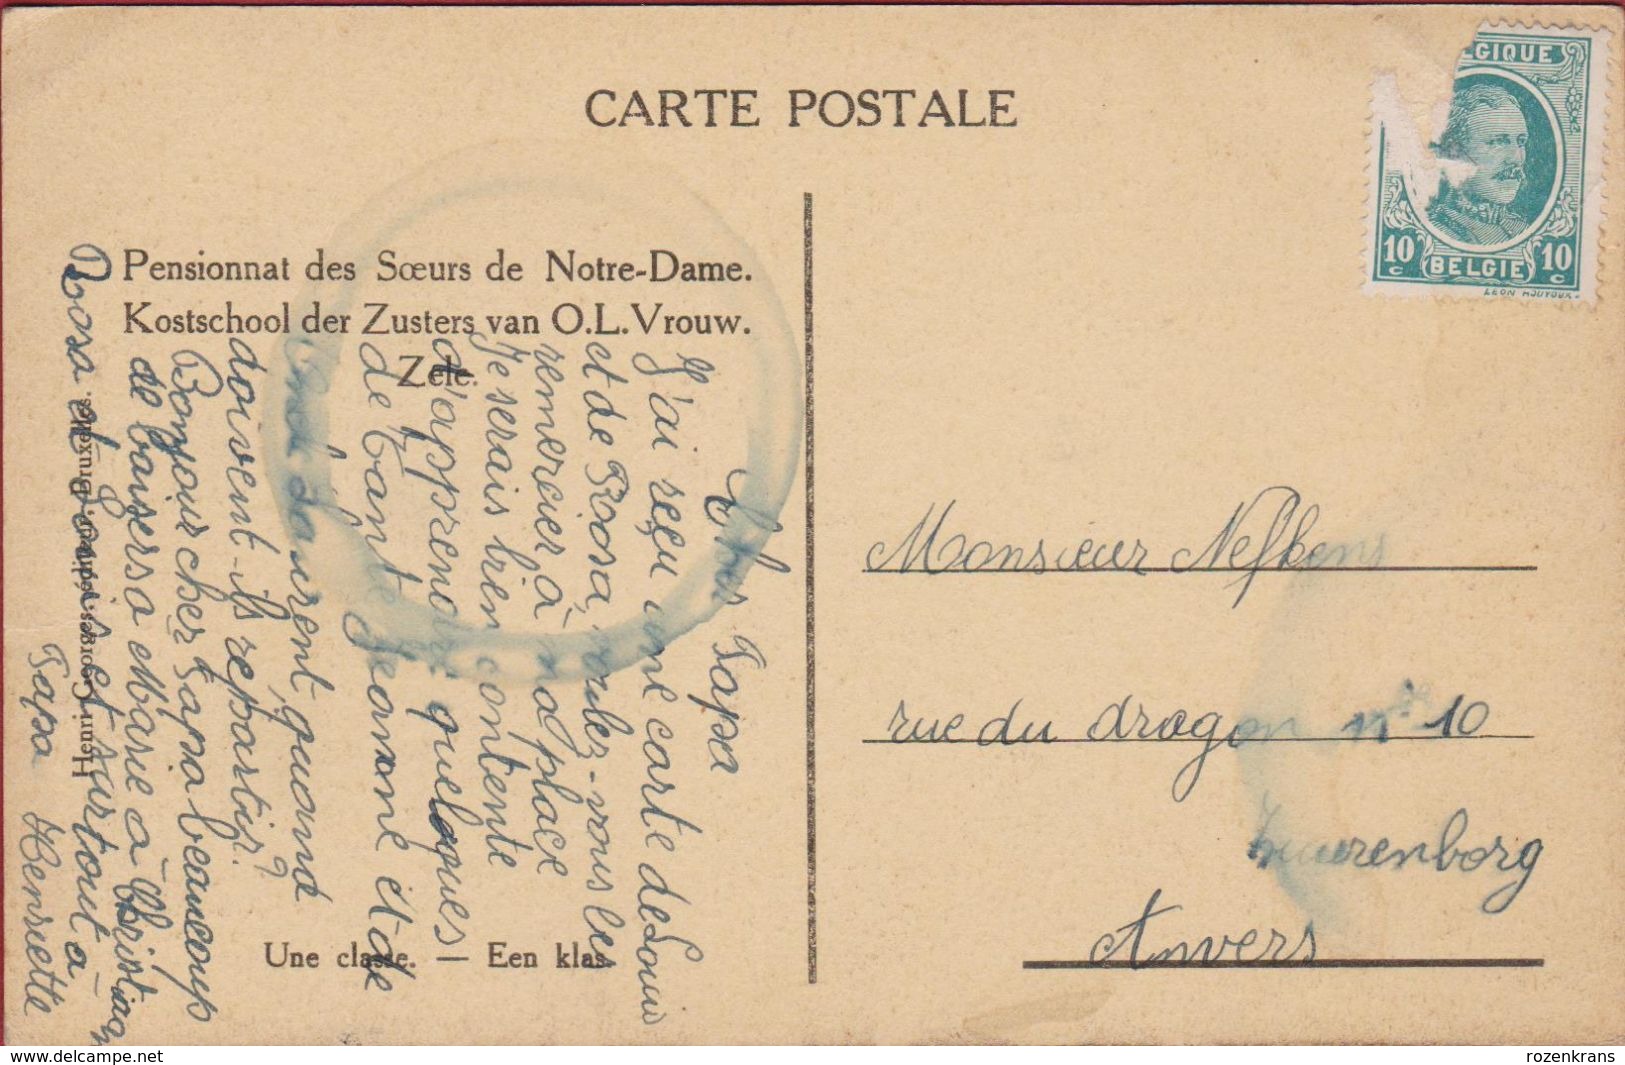 CARTE POSTALE
LGIQUE
10 c
BELGIE
10 c
Pensionnat des Sœurs de Notre-Dame.
Kostschool der Zusters van O.L.Vrouw.
Zele.
Cher Papa
J'ai reçu une carte de Louis
et de Rosa, voulez-vous les
remercier à ma place
Je serais bien contente
d'apprendre quelques
de tante Jeanne et de
quand
doivent-ils repartir?
Bonjour cher Papa beaucoup
de baisers à Marie à Christian
Rosa et Louis et surtout à
Papa Henriette
Une classe. — Een klas
Monsieur Nefkens
rue du dragon n° 10
Zuurenborg
Anvers
rozenkrans
www.delcampe.net